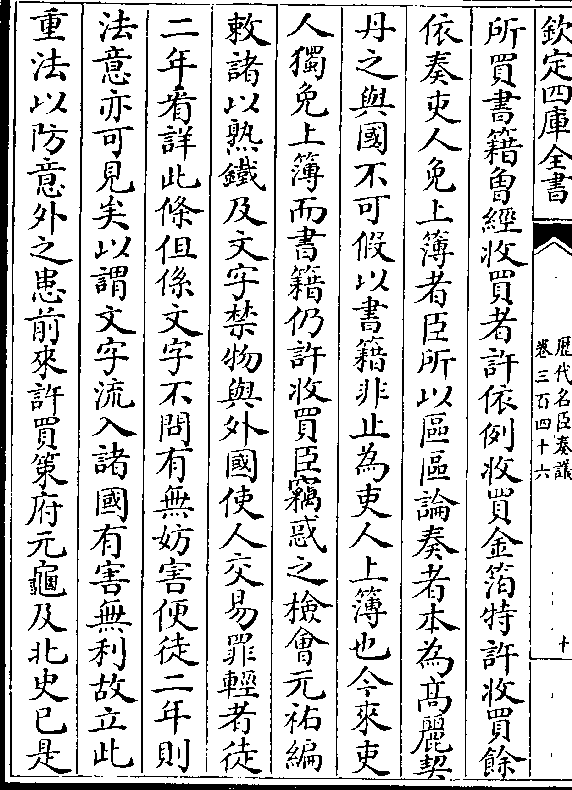 欽定四庫全書
歴代名臣奏議
卷三百四十六
十
所買書籍曾經收買者許依例收買金箔特許收買餘
依奏吏人免上簿者臣所以區區論奏者本為髙麗契
丹之與國不可假以書籍非止為吏人上簿也今來吏
人獨免上簿而書籍仍許收買臣竊惑之檢會元祐編
敕諸以熟鐵及文字禁物與外國使人交易罪輕者徒
二年看詳此條但係文字不問有無妨害便徒二年則
法意亦可見矣以謂文字流入諸國有害無利故立此
重法以防意外之患前來許買策府元龜及北史已是